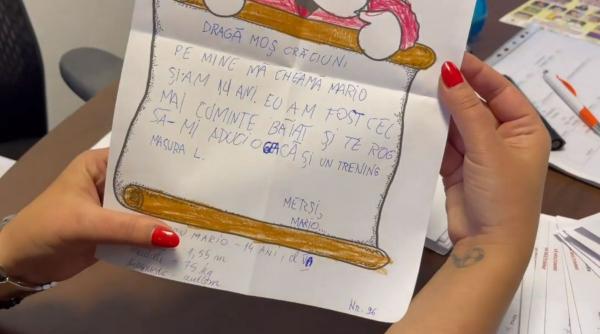 DRAGĂ MOȘ CRĂCIUN!
PE MINE MĂ CHEAMĂ MARIO
ȘI AM 14 ANI. EU AM FOST CEL
MAI CUMINTE BĂIAT ȘI TE ROG
SĂ-MI ADUCI O GEACĂ ȘI UN TRENING
MASURA L.
MERSI,
MARIO...
MARIO - 14 ANI,
1,55 m
75 kg
autism
Nr. 36